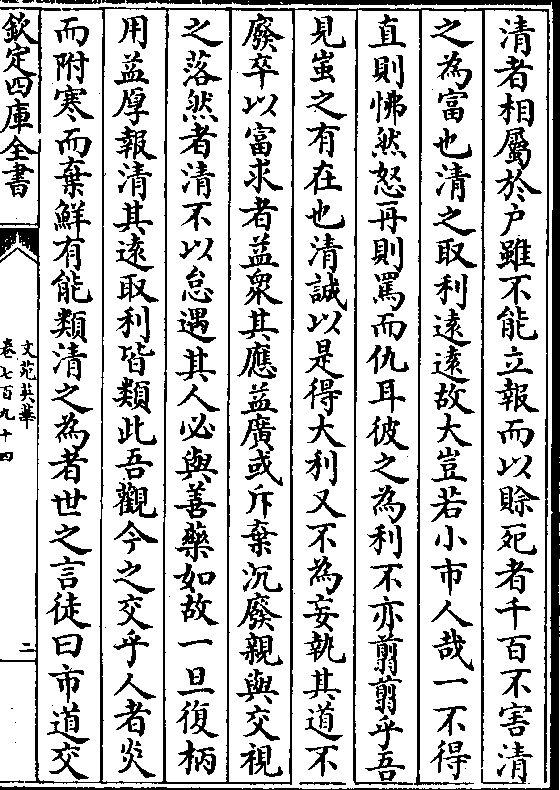 清者相屬於户雖不能立報而以賖死者千百不害清
之為富也清之取利逺逺故大豈若小市人哉一不得
直則怫然怒再則罵而仇耳彼之為利不亦翦翦乎吾
見蚩之有在也清誠以是得大利又不為妄執其道不
廢卒以富求者益衆其應益廣或斥棄沉廢親與交視
之落然者清不以怠遇其人必與善藥如故一旦復柄
用益厚報清其逺取利皆類此吾觀今之交乎人者炎
而附寒而棄鮮有能類清之為者世之言徒曰市道交
欽定四庫全書
文苑英華
卷七百九十四
二